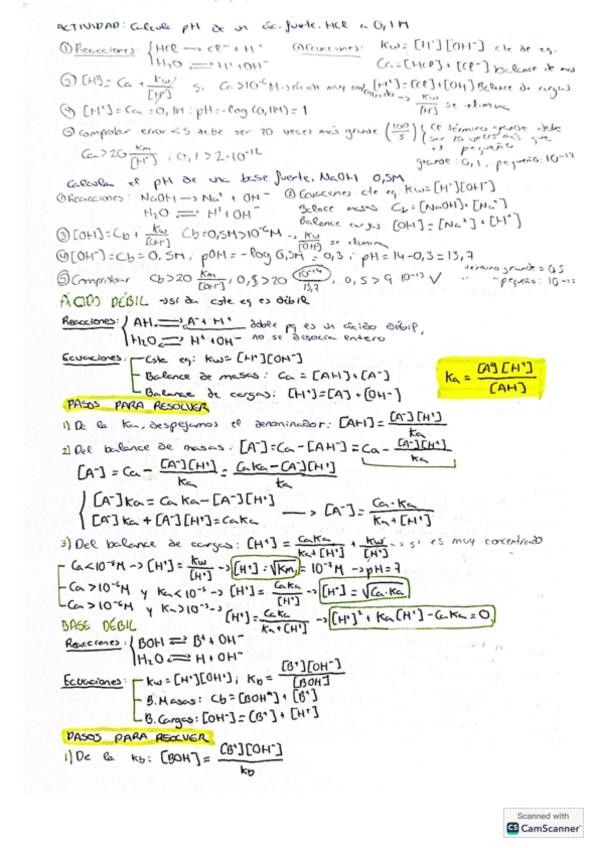 ACTIVIDAD: Calcula pH de un ác. fuerte. HCl a 0,1M
① Reacciones: { HCl → Cl⁻ + H⁺ ② Ecuaciones: Kw = [H⁺][OH⁻] cte de eq.
H₂O ⇌ H⁺ + OH⁻ Ca = [HCl] + [Cl⁻] Balance de mas
③ [H⁺] = Ca + Kw/[H⁺] si Ca > 10⁻⁶M → [H⁺] = [Cl⁻] + [OH⁻] Balance de cargas
Kw/[H⁺] se elimina
④ [H⁺] = Ca = 0,1M : pH = -log(0,1M) = 1
⑤ Comprobar error < 5 debe ser 20 veces más grande (100/5) { El término grande debe
ser 20 veces más que
el pequeño
Ca > 20 Kw/[H⁺] , 0,1 > 2·10⁻¹² grande: 0,1, pequeño: 10⁻¹³
Calcula el pH de una base fuerte. NaOH 0,5M
① Reacciones: NaOH → Na⁺ + OH⁻ ② Ecuaciones cte eq. Kw = [H⁺][OH⁻]
H₂O ⇌ H⁺ + OH⁻ Balance masas Cb = [NaOH] + [Na⁺]
Balance cargas [OH⁻] = [Na⁺] + [H⁺]
③ [OH⁻] = Cb + Kw/[OH⁻] Cb = 0,5M > 10⁻⁶M → Kw/[OH⁻] se elimina
④ [OH⁻] = Cb = 0,5M, pOH = -log 0,5M = 0,3 ; pH = 14 - 0,3 = 13,7
⑤ Comprobar Cb > 20 Kw/[OH⁻] , 0,5 > 20 10⁻¹⁴/13,7 , 0,5 > 9 10⁻¹³ ✓ término grande = 0,5
" pequeño: 10⁻¹²
ÁCIDO DÉBIL → si dan cste eq es débil
Reacciones: { AH ⇌ A⁻ + H⁺ doble pq es un ácido débil,
H₂O ⇌ H⁺ + OH⁻ no se disocia entero
Ecuaciones: Cste eq: Kw = [H⁺][OH⁻]
Balance de masas: Ca = [AH] + [A⁻]
Balance de cargas: [H⁺] = [A⁻] + [OH⁻]
Ka = [A⁻][H⁺]/[AH]
PASOS PARA RESOLVER
1) De la Ka, despejamos el denominador: [AH] = [A⁻][H⁺]/Ka
2) Del balance de masas: [A⁻] = Ca - [AH] = Ca - [A⁻][H⁺]/Ka
[A⁻] = Ca - [A⁻][H⁺]/Ka = CaKa - [A⁻][H⁺]/Ka
{ [A⁻]Ka = CaKa - [A⁻][H⁺]
[A⁻]Ka + [A⁻][H⁺] = CaKa → [A⁻] = Ca·Ka/Ka + [H⁺]
3) Del balance de cargas: [H⁺] = CaKa/Ka + [H⁺] + Kw/[H⁺] → si es muy concentrado
Ca < 10⁻⁸M → [H⁺] = Kw/[H⁺] → [H⁺] = √Kw = 10⁻⁷M → pH = 7
Ca > 10⁻⁶M y Ka < 10⁻⁵ → [H⁺] = CaKa/[H⁺] → [H⁺] = √Ca·Ka
Ca > 10⁻⁶M y Ka > 10⁻⁵ → [H⁺] = CaKa/Ka + [H⁺] → [H⁺]² + Ka[H⁺] - CaKa = 0
BASE DÉBIL
Reacciones: { BOH ⇌ B⁺ + OH⁻
H₂O ⇌ H + OH⁻
Ecuaciones: Kw = [H⁺][OH⁻] ; Kb = [B⁺][OH⁻]/[BOH]
B. Masas: Cb = [BOH] + [B⁺]
B. Cargas: [OH⁻] = [B⁺] + [H⁺]
PASOS PARA RESOLVER
1) De la Kb: [BOH] = [B⁺][OH⁻]/Kb
Scanned with
CS CamScanner